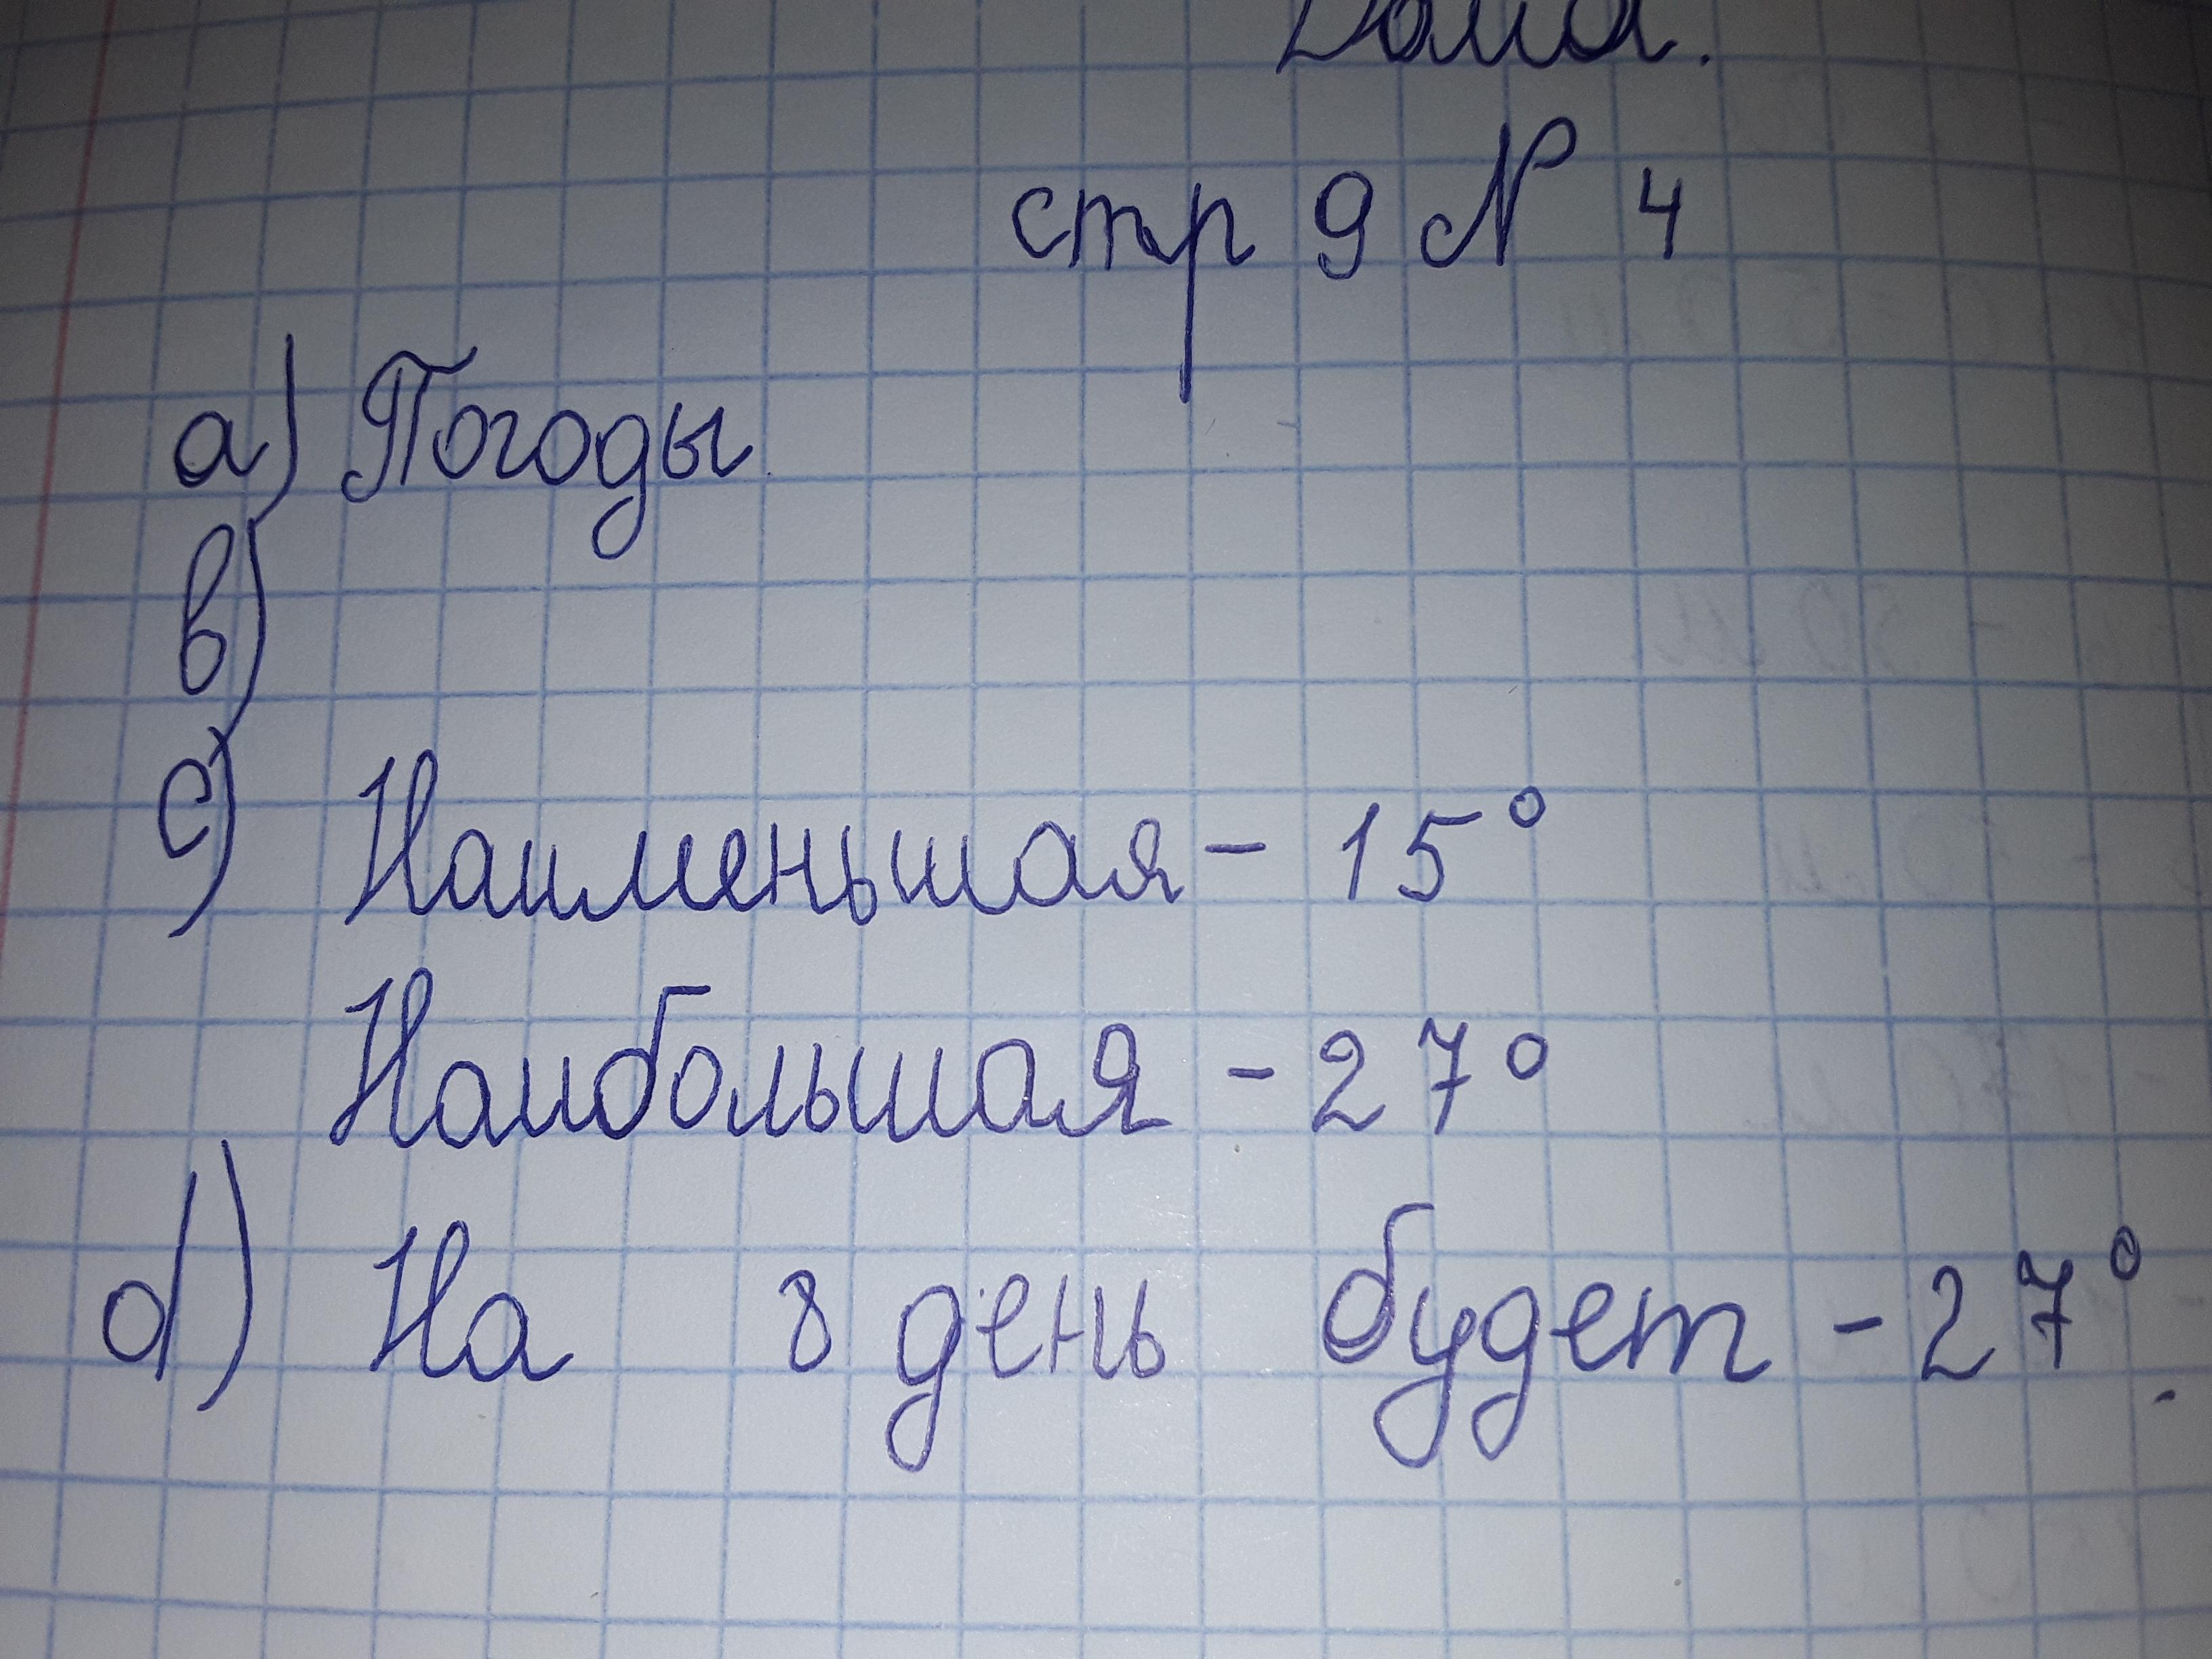 Дома.
стр 9 № 4
а) Погоды
в)
с) Наименьшая - 15°
Наибольшая - 27°
d) На 8 день будет - 27°.